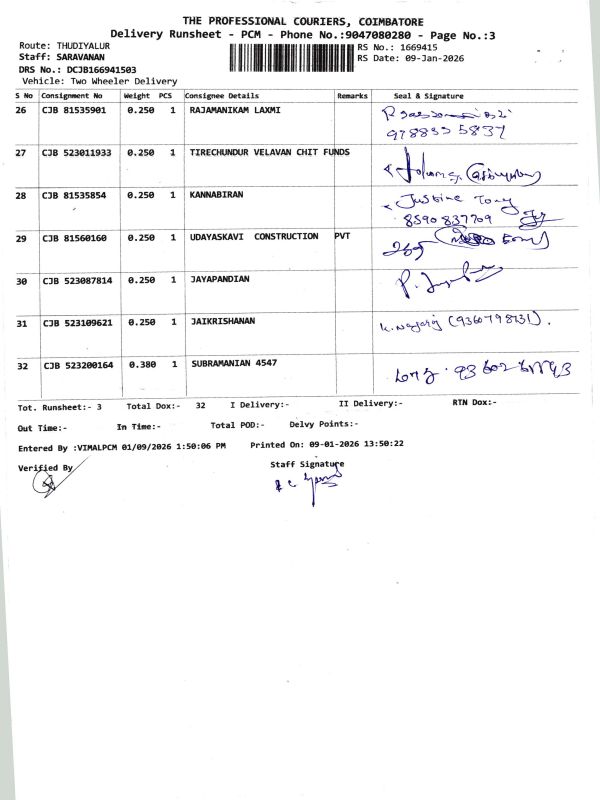 THE PROFESSIONAL COURIERS, COIMBATORE
Delivery Runsheet - PCM - Phone No.:9047080280 - Page No.:3
Route: THUDIYALUR
RS No.: 1669415
Staff: SARAVANAN
RS Date: 09-Jan-2026
DRS No.: DCJB166941503
Vehicle: Two Wheeler Delivery
S No Consignment No Weight PCS Consignee Details Remarks Seal & Signature
26 CJB 81535901 0.250 1 RAJAMANIKAM LAXMI
27 CJB 523011933 0.250 1 TIRECHUNDUR VELAVAN CHIT FUNDS
28 CJB 81535854 0.250 1 KANNABIRAN Justine Tony
8590 837709
29 CJB 81560160 0.250 1 UDAYASKAVI CONSTRUCTION PVT
30 CJB 523087814 0.250 1 JAYAPANDIAN
31 CJB 523109621 0.250 1 JAIKRISHANAN
32 CJB 523200164 0.380 1 SUBRAMANIAN 4547
Tot. Runsheet:- 3 Total Dox:- 32 I Delivery:- II Delivery:- RTN Dox:-
Out Time:- In Time:- Total POD:- Delvy Points:-
Entered By :VIMALPCM 01/09/2026 1:50:06 PM Printed On: 09-01-2026 13:50:22
Verified By Staff Signature